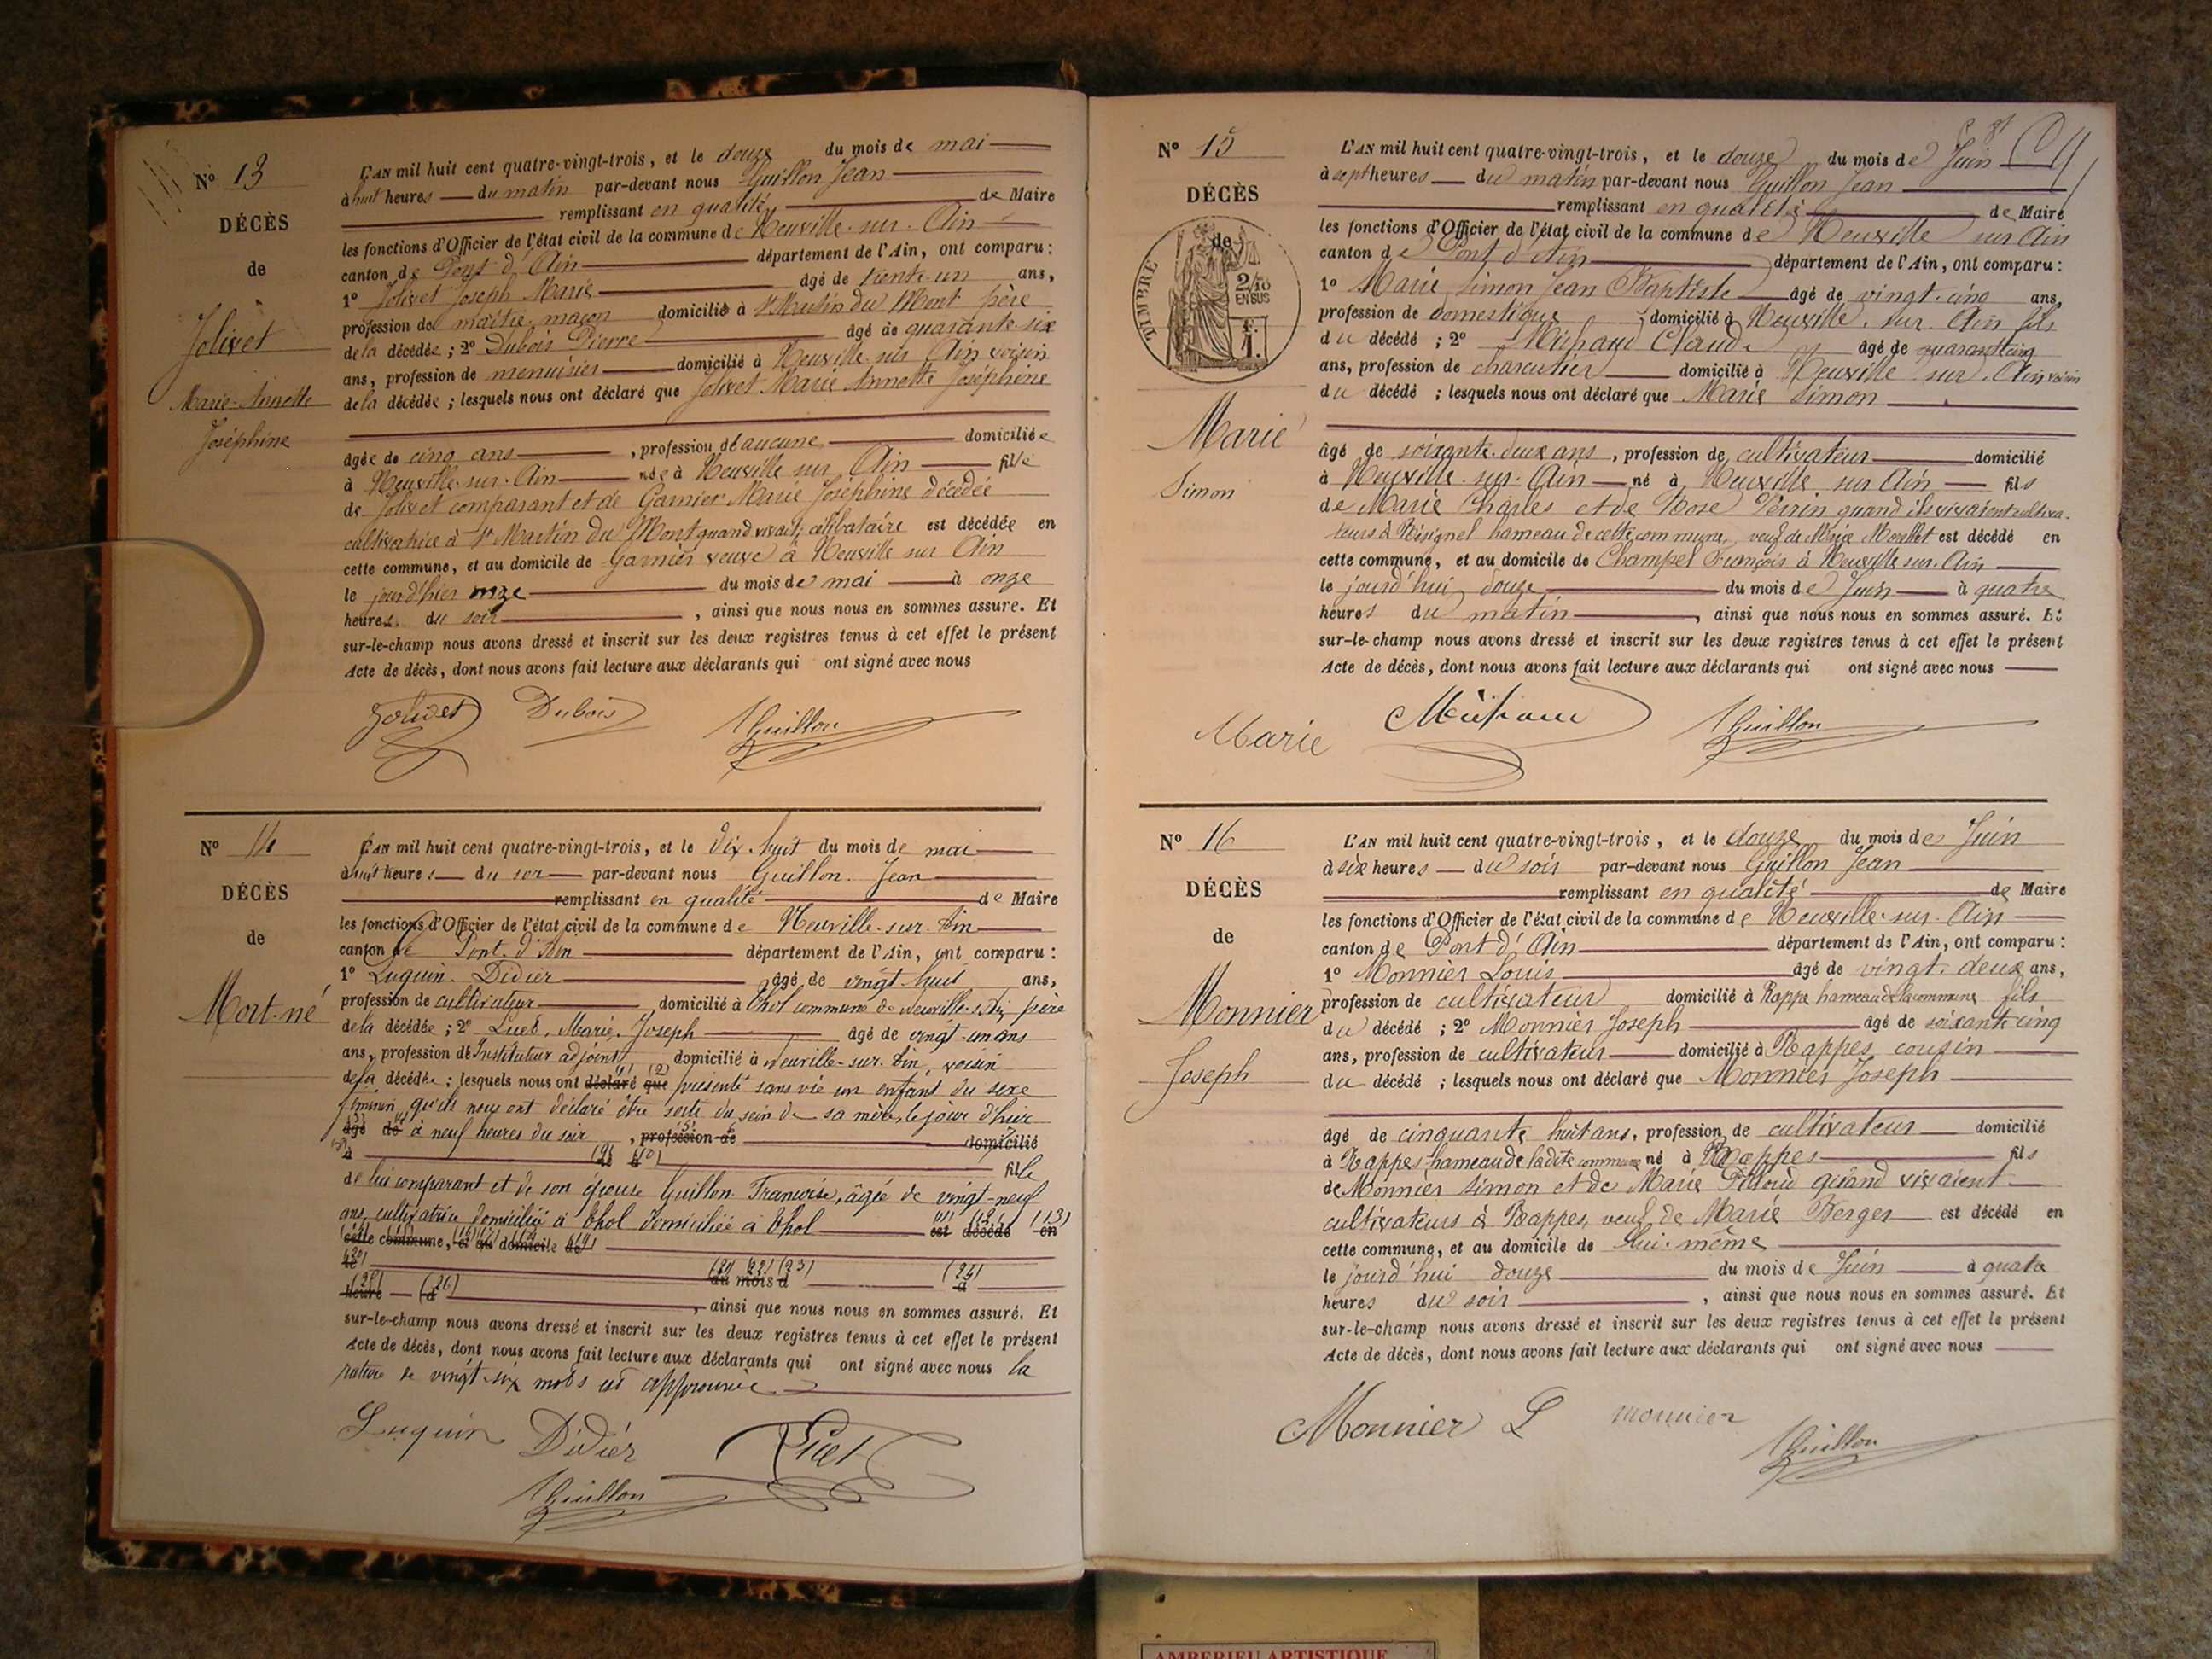 N° 13
DÉCÈS
de
Jolivet
Marie-Annette
Joséphine
L'AN mil huit cent quatre-vingt-trois, et le douze du mois de mai
à huit heures du matin par-devant nous Guillon Jean
remplissant en qualité de Maire
les fonctions d'Officier de l'état civil de la commune de Neuville-sur-Ain
canton de Pont d'Ain département de l'Ain, ont comparu:
1° Jolivet Joseph Marie âgé de trente-un ans,
profession de maître maçon domicilié à St Martin du Mont père
de la décédée; 2° Dubois Pierre âgé de quarante-six
ans, profession de menuisier domicilié à Neuville sur Ain voisin
de la décédée; lesquels nous ont déclaré que Jolivet Marie Annette Joséphine
âgée de cinq ans, profession de aucune domiciliée
à Neuville-sur-Ain née à Neuville sur Ain fille
de Jolivet comparant et de Garnier Marie Joséphine décédée
cultivatrice à St Martin du Mont quand vivait; célibataire est décédée en
cette commune, et au domicile de Garnier veuve à Neuville sur Ain
le jour d'hier onze du mois de mai à onze
heures du soir, ainsi que nous nous en sommes assuré. Et
sur-le-champ nous avons dressé et inscrit sur les deux registres tenus à cet effet le présent
Acte de décès, dont nous avons fait lecture aux déclarants qui ont signé avec nous
Jolivet Dubois JGuillon
N° 14
DÉCÈS
de
Mort-né
L'AN mil huit cent quatre-vingt-trois, et le dix-huit du mois de mai
à huit heures du soir par-devant nous Guillon Jean
remplissant en qualité de Maire
les fonctions d'Officier de l'état civil de la commune de Neuville-sur-Ain
canton de Pont-d'Ain département de l'Ain, ont comparu:
1° Luquin Didier âgé de vingt-huit ans,
profession de cultivateur domicilié à Thol commune de Neuville s. Ain père
de la décédée; 2° Luet, Marie, Joseph âgé de vingt-un ans
ans, profession de Instituteur adjoint domicilié à Neuville-sur-Ain, voisin
de la décédée; lesquels nous ont déclaré (1) que (2) présenté sans vie un enfant du sexe
féminin qu'ils nous ont déclaré être sorti du sein de sa mère, le jour d'hier
âgé de à neuf heures du soir, profession de domicilié
à fille
de lui comparant et de son épouse Guillon Françoise, âgée de vingt-neuf
ans, cultivatrice domiciliée à Thol domiciliée à Thol est décédé en (11) (12) (13)
cette commune, et au domicile de
le du mois d (21) (22) (23) à (24)
heure à (26), ainsi que nous nous en sommes assuré. Et
sur-le-champ nous avons dressé et inscrit sur les deux registres tenus à cet effet le présent
Acte de décès, dont nous avons fait lecture aux déclarants qui ont signé avec nous la
rature de vingt-six mots est approuvée
Luquin Didier Luet
JGuillon
N° 15
DÉCÈS
de
TIMBRE
2/10
EN SUS
Marie
Simon
L'AN mil huit cent quatre-vingt-trois, et le douze du mois de Juin
à sept heures du matin par-devant nous Guillon Jean
remplissant en qualité de Maire
les fonctions d'Officier de l'état civil de la commune de Neuville sur Ain
canton de Pont d'Ain département de l'Ain, ont comparu:
1° Marie Simon Jean Baptiste âgé de vingt-cinq ans,
profession de domestique domicilié à Neuville-sur-Ain fils
du décédé; 2° Michaud Claude âgé de quarante cinq
ans, profession de charcutier domicilié à Neuville-sur-Ain voisin
du décédé; lesquels nous ont déclaré que Marie Simon
âgé de soixante-deux ans, profession de cultivateur domicilié
à Neuville-sur-Ain né à Neuville sur Ain fils
de Marie Charles et de Rose Perrin quand ils vivaient cultiva-
teurs à Résignel hameau de cette commune, veuf de Marie est décédé en
cette commune, et au domicile de Champel François à Neuville-sur-Ain
le jourd'hui douze du mois de Juin à quatre
heures du matin, ainsi que nous nous en sommes assuré. Et
sur-le-champ nous avons dressé et inscrit sur les deux registres tenus à cet effet le présent
Acte de décès, dont nous avons fait lecture aux déclarants qui ont signé avec nous
Marie Michaud JGuillon
N° 16
DÉCÈS
de
Monnier
Joseph
L'AN mil huit cent quatre-vingt-trois, et le douze du mois de Juin
à six heures du soir par-devant nous Guillon Jean
remplissant en qualité de Maire
les fonctions d'Officier de l'état civil de la commune de Neuville-sur-Ain
canton de Pont d'Ain département de l'Ain, ont comparu:
1° Monnier Louis âgé de vingt-deux ans,
profession de cultivateur domicilié à Rappe hameau de la commune fils
du décédé; 2° Monnier Joseph âgé de soixante cinq
ans, profession de cultivateur domicilié à Rappes cousin
du décédé; lesquels nous ont déclaré que Monnier Joseph
âgé de cinquante huit ans, profession de cultivateur domicilié
à Rappes hameau de la dite commune né à Rappes fils
de Monnier Simon et de Marie quand vivaient
cultivateurs à Rappes, veuf de Marie Berger est décédé en
cette commune, et au domicile de lui-même
le jourd'hui douze du mois de Juin à quatre
heures du soir, ainsi que nous nous en sommes assuré. Et
sur-le-champ nous avons dressé et inscrit sur les deux registres tenus à cet effet le présent
Acte de décès, dont nous avons fait lecture aux déclarants qui ont signé avec nous
Monnier L monnier
JGuillon
AMBERIEU ARTISTIQUE